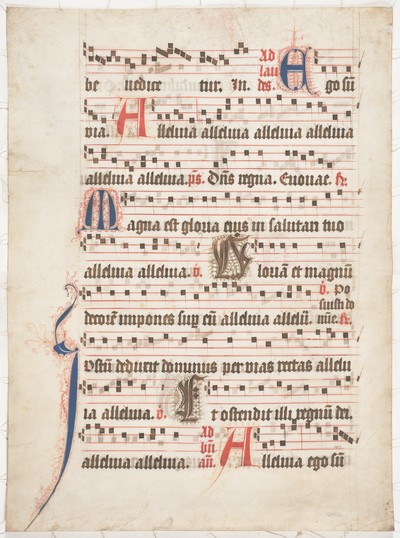 be nedice tur. In. Ad laudes. Ego sū
via. Alleluia alleluia alleluia alleluia
alleluia alleluia. ps. Dn̄s regna. Euouae.
Magna est gloria eius in salutari tuo
alleluia alleluia. v. Gloriā et magnū
decorē impones sup eū alleluia allelū. v. Po
Iustū deduxit dominus per vias rectas allelu
ia alleluia. v. Et ostendit illi regnū dei.
alleluia alleluia. Ad Alleluia ego sū